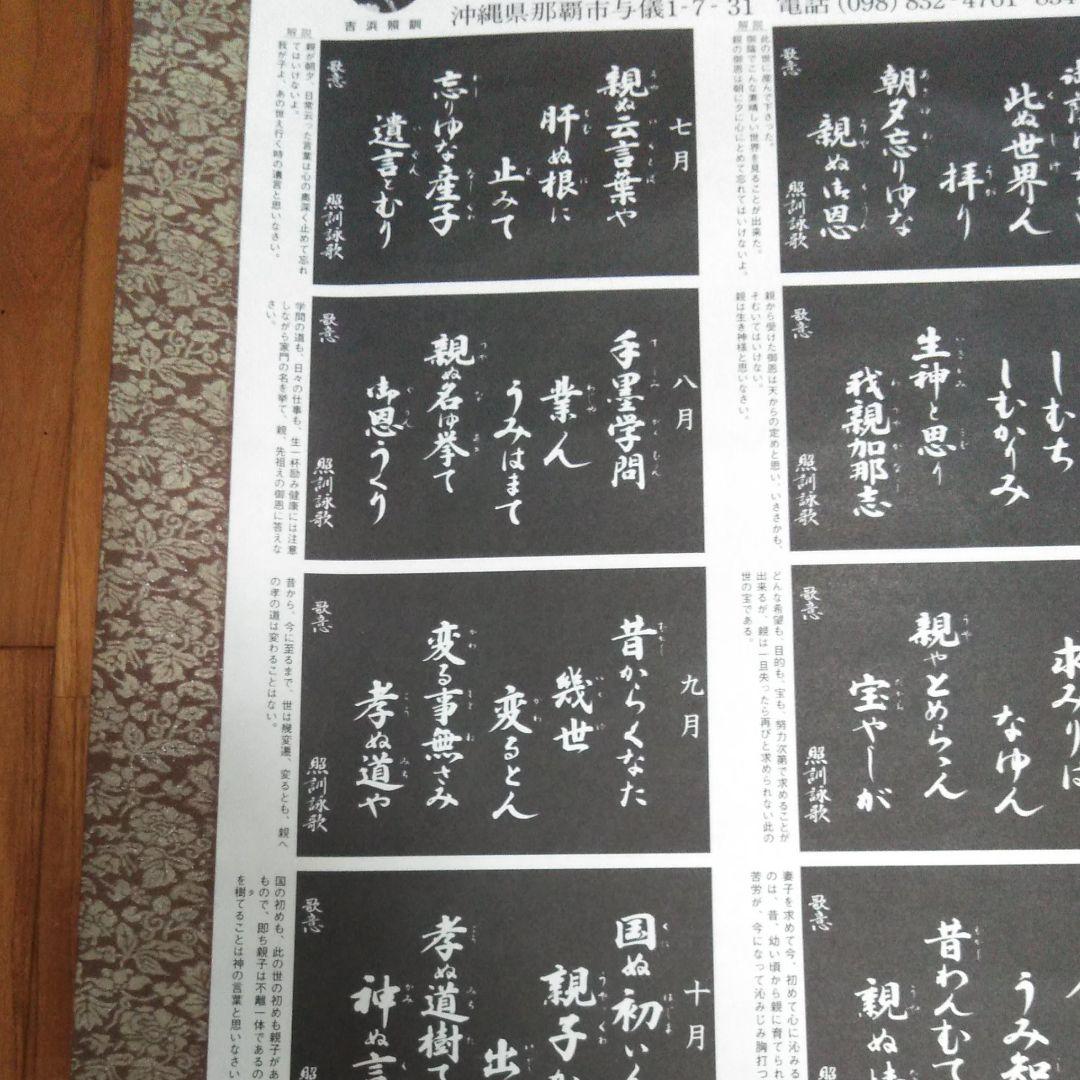 沖縄県那覇市与儀1-7-31 電話(098)832-4761
吉浜照訓
解説
此の世に産んで下さった。
御陰でこんな素晴しい世界を見ることが出来た。
親の御恩は朝に夕に心にとめて忘れてはいけないよ。
歌意
此ぬ世界ん
拝り
朝夕忘りゆな
親ぬ御恩
照訓詠歌
親から受けた御恩は天からの定めと思い、いささかも、
そむいてはいけない。
親は生き神様と思いなさい。
歌意
しむち
しむかりみ
生神と思り
我親加那志
照訓詠歌
どんな希望も、目的も、宝も、努力次第で求めることが
出来るが、親は一旦失ったら再びと求められない此の
世の宝である。
歌意
求みりば
なゆん
親やとめらん
宝やしが
照訓詠歌
妻子を求めて今、初めて心に沁みる
のは、昔、幼い頃から親に育てられ
苦労が、今になって沁みじみ胸打つ
歌意
うみ知
昔わんむて
親ぬ情
照
解説
親が朝夕、日常云った言葉は心の奥深く止めて忘れ
てはいけないよ。
我が子よ、あの世え行く時の遺言と思いなさい。
歌意
七月
親ぬ云言葉や
肝ぬ根に
止みて
忘りゆな産子
遺言とむり
照訓詠歌
学問の道も、日々の仕事も、生一杯励み健康には注意
しながら家門の名を挙て、親、先祖えの御恩に答えな
さい。
歌意
八月
手墨学問
業ん
うみはまて
親ぬ名ゆ挙て
御恩うくり
照訓詠歌
昔から、今に至るまで、世は幾変遷、変るとも、親へ
の孝の道は変わることはない。
歌意
九月
昔からくなた
幾世
変るとん
変る事無さみ
孝ぬ道や
照訓詠歌
国の初めも、此の世の初めも親子があ
もので、即ち親子は不離一体であるの
を樹てることは神の言葉と思いなさい
歌意
十月
国ぬ初いく
親子か
出
孝ぬ道樹て
神ぬ言
照